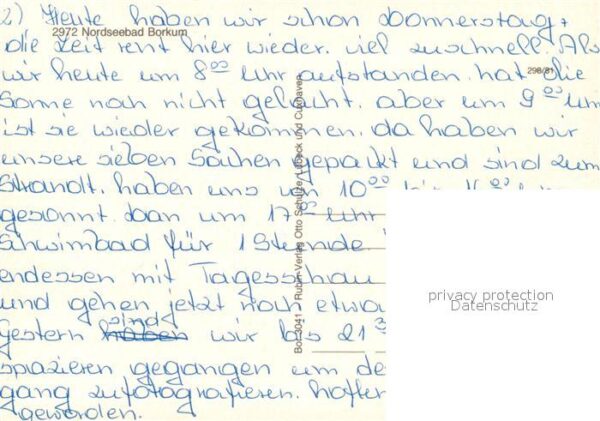 2) Heute haben wir schon Donnerstag,
2972 Nordseebad Borkum
die Zeit rent hier wieder viel zuschnell. Als
wir heute um 8⁰⁰ Uhr aufstanden. hat die
298/81
Sonne noch nicht gelacht. aber um 9⁰⁰ Uhr
ist sie wieder gekommen. da haben wir
unsere sieben Sachen gepackt und sind zum
Strandt. haben uns von 10⁰⁰ bis
gesonnt. dan um 17⁰⁰ Uhr
Schwimbad für 1 Stunde
endessen mit Tagesschau
und gehen jetzt noch etwa
gestern haben sind wir bis 21
spazieren gegangen um de
gang zufotografieren. hoffen
geworden.
Bor 3041 Rubin-Verlag Otto Schültze, Lübeck und Cuxhaven
privacy protection
Datenschutz